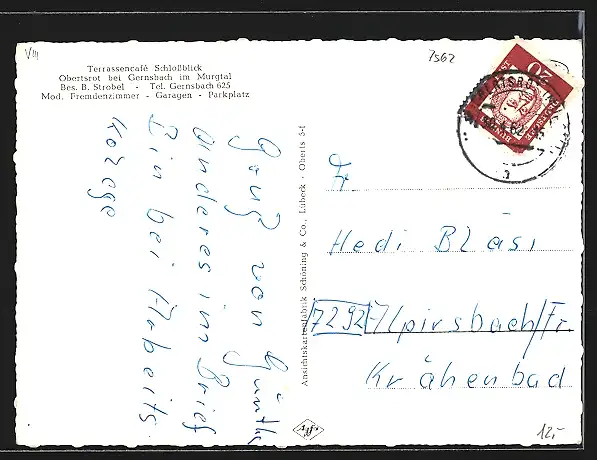 VIII
7562
Terrassencafé Schloßblick
Obertsrot bei Gernsbach im Murgtal
Bes. B. Strobel - Tel. Gernsbach 625
Mod. Fremdenzimmer - Garagen - Parkplatz
20
Gruß von Günther
anderes im Brief
Bin bei Arbeits
kolege
Ansichtskartenfabrik Schöning & Co., Lübeck - Oberts 3-1
Fr
Hedi Bläsi
7292 Alpirsbach/Fr.
Krähenbad
Agfa
12,-